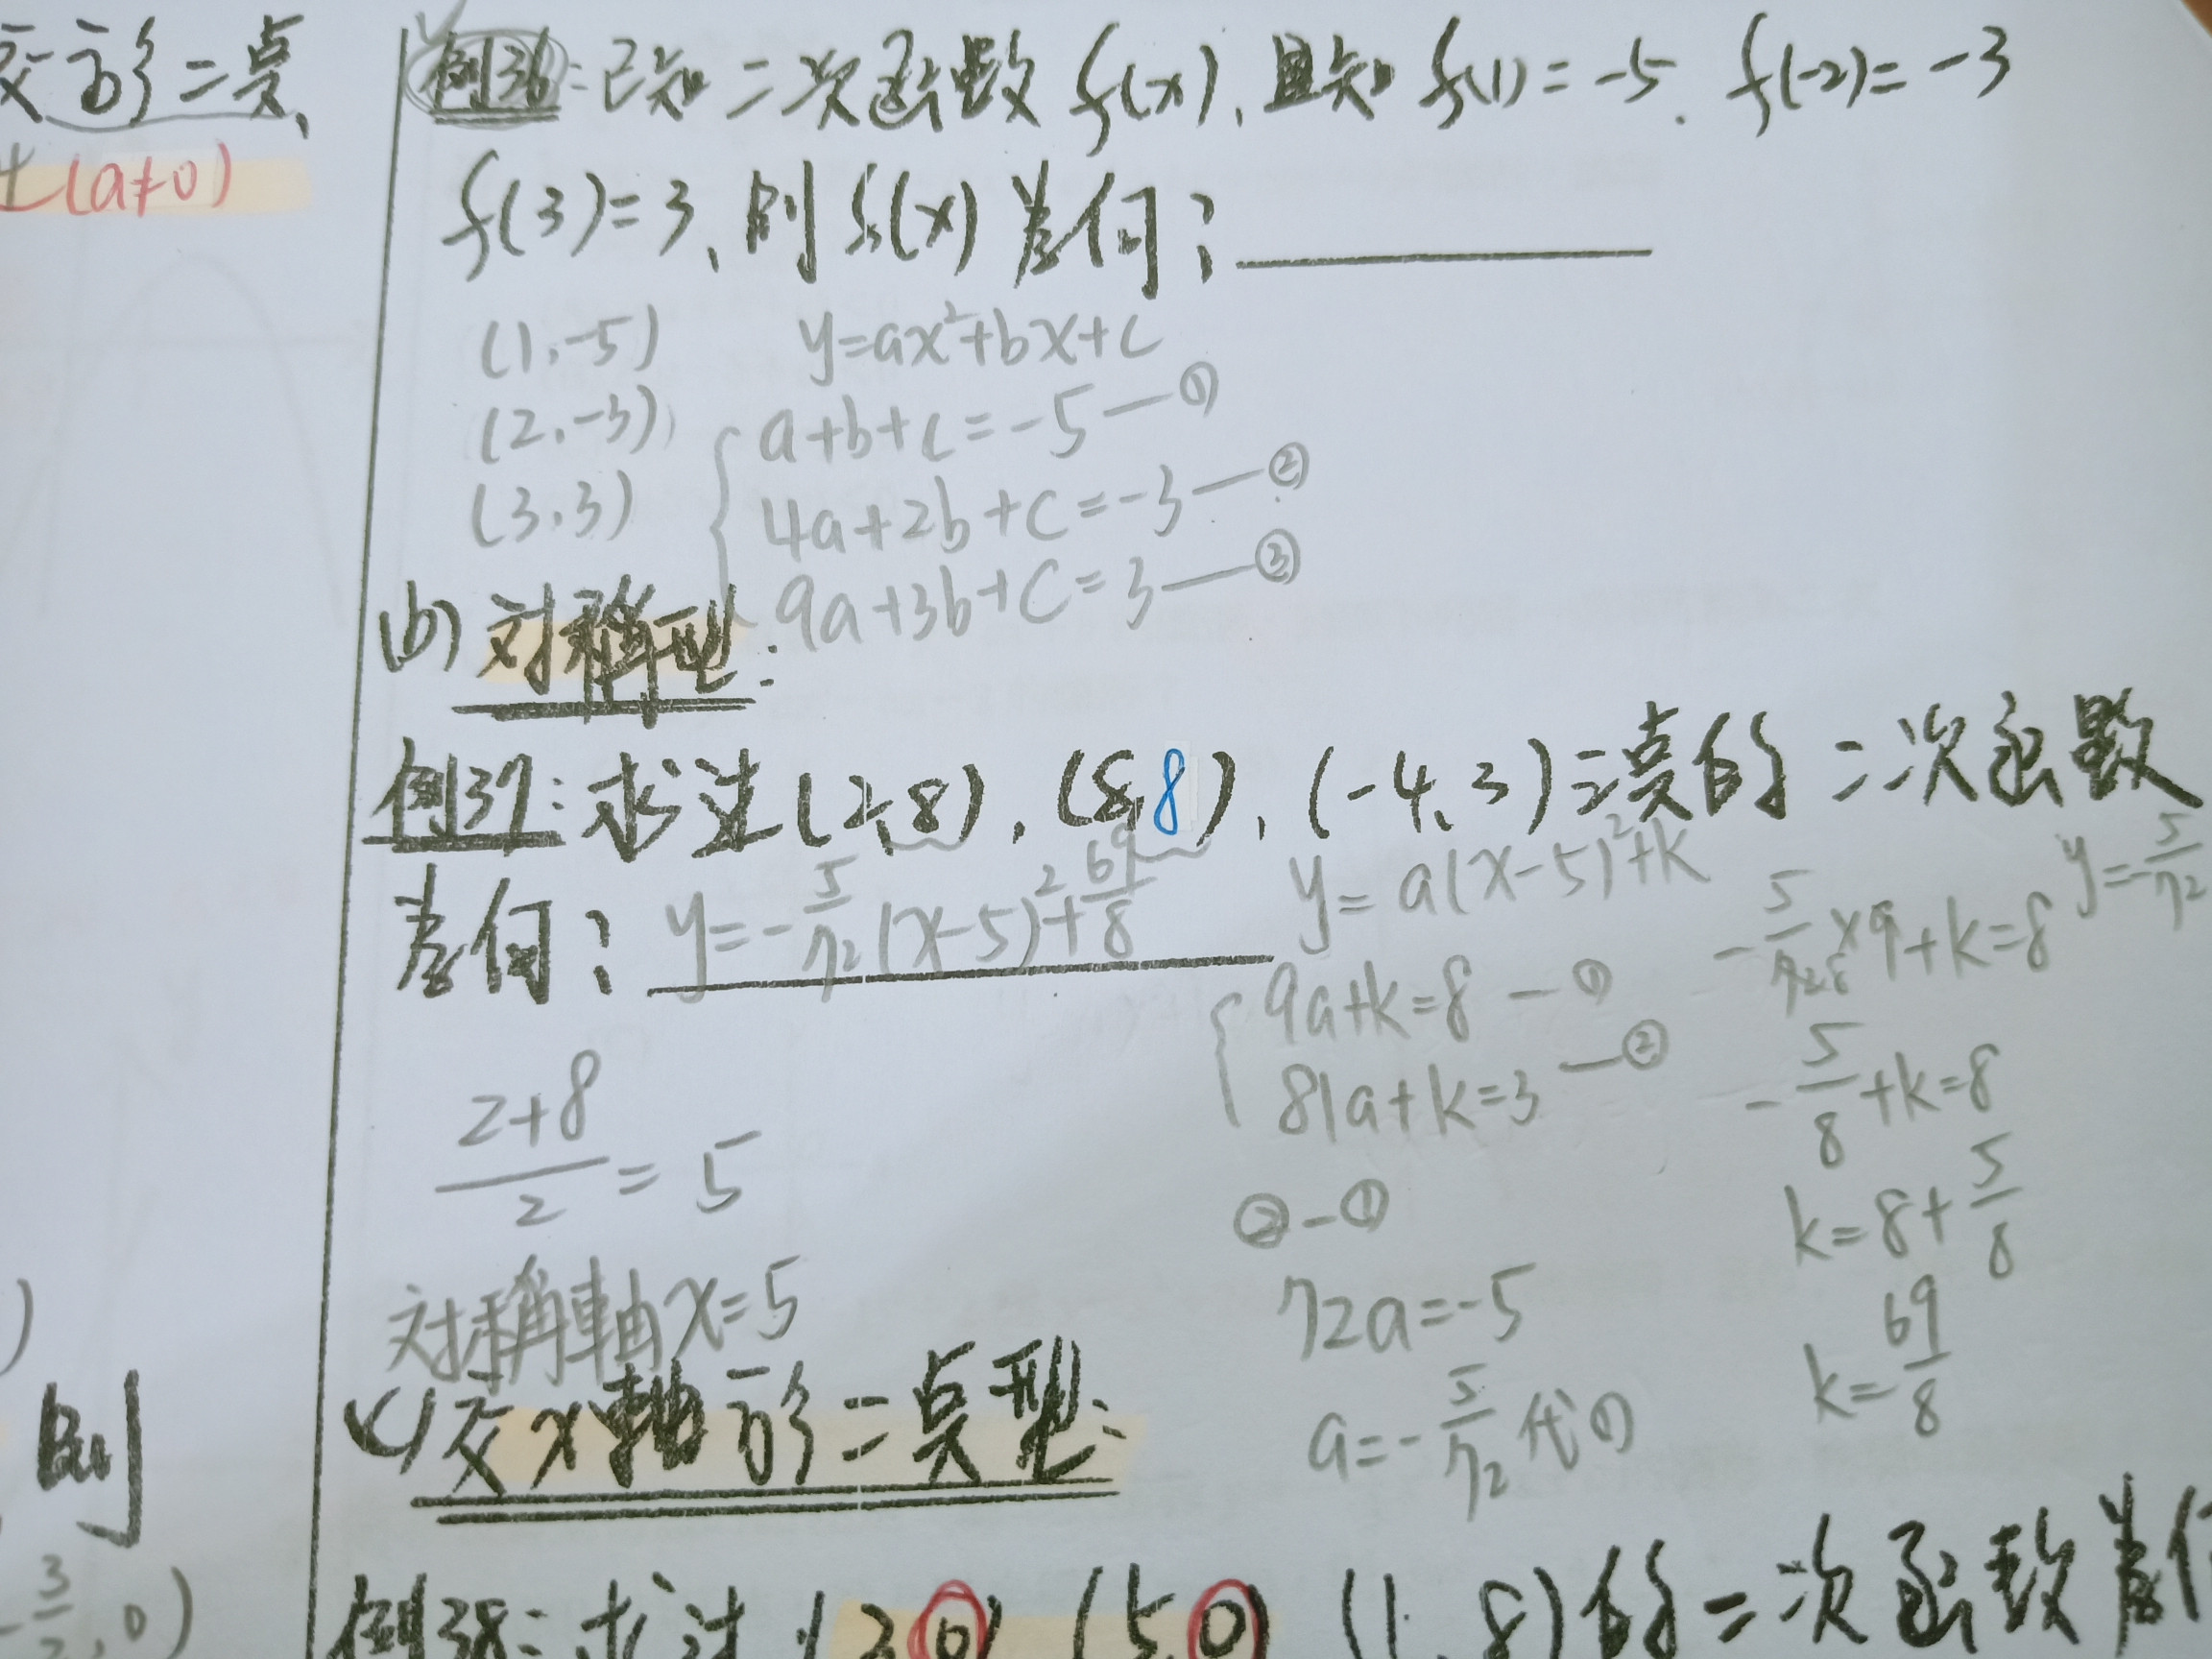 交於二点、
(a≠0)
則
例36:已知二次函數 f(x), 且知 f(1)=-5. f(-2)=-3
f(3)=3, 則 f(x) 為何: ________
(1,-5) y=ax²+bx+c
(2,-3) a+b+c=-5—①
(3,3) 4a+2b+c=-3—②
9a+3b+c=3—③
(b) 対稱型:
例37: 求过(2,8), (8,8), (-4,3)三点的二次函數
為何: y=-5/72(x-5)²+69/8
y=a(x-5)²+k
9a+k=8 —①
81a+k=3 —②
②-①
72a=-5
a=-5/72 代①
-5/72×9+k=8
-5/8+k=8
k=8+5/8
k=69/8
y=-5/72
2+8/2=5
対稱軸x=5
(c) 交x軸於二点型:
例38: 求过 (5,0) (1,8)的二次函數為